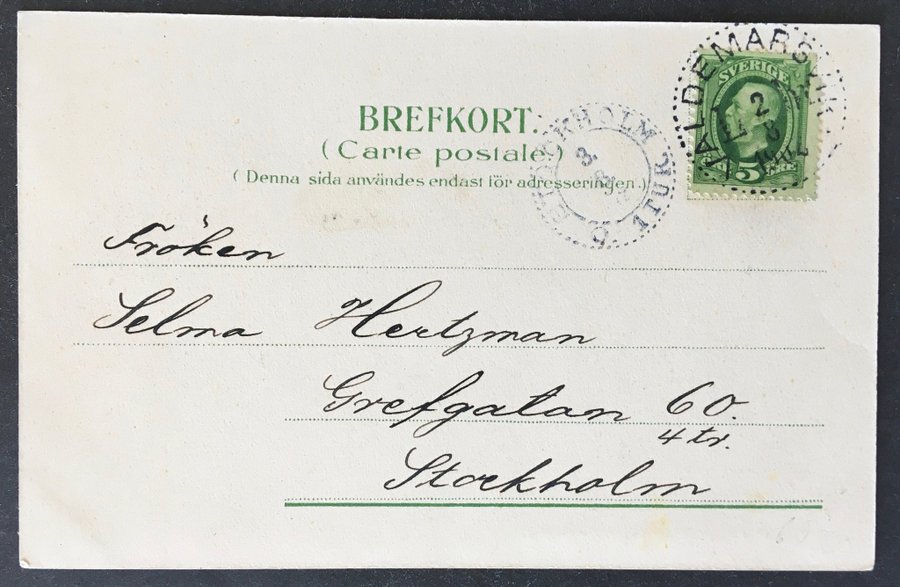 BREFKORT.
(Carte postale.)
(Denna sida användes endast för adresseringen.)
SVERIGE
5
VALDEMARSVIK
2
STOCKHOLM
3
1 TUR
Fröken
Selma Hertzman
Grefgatan 60.
4 tr.
Stockholm